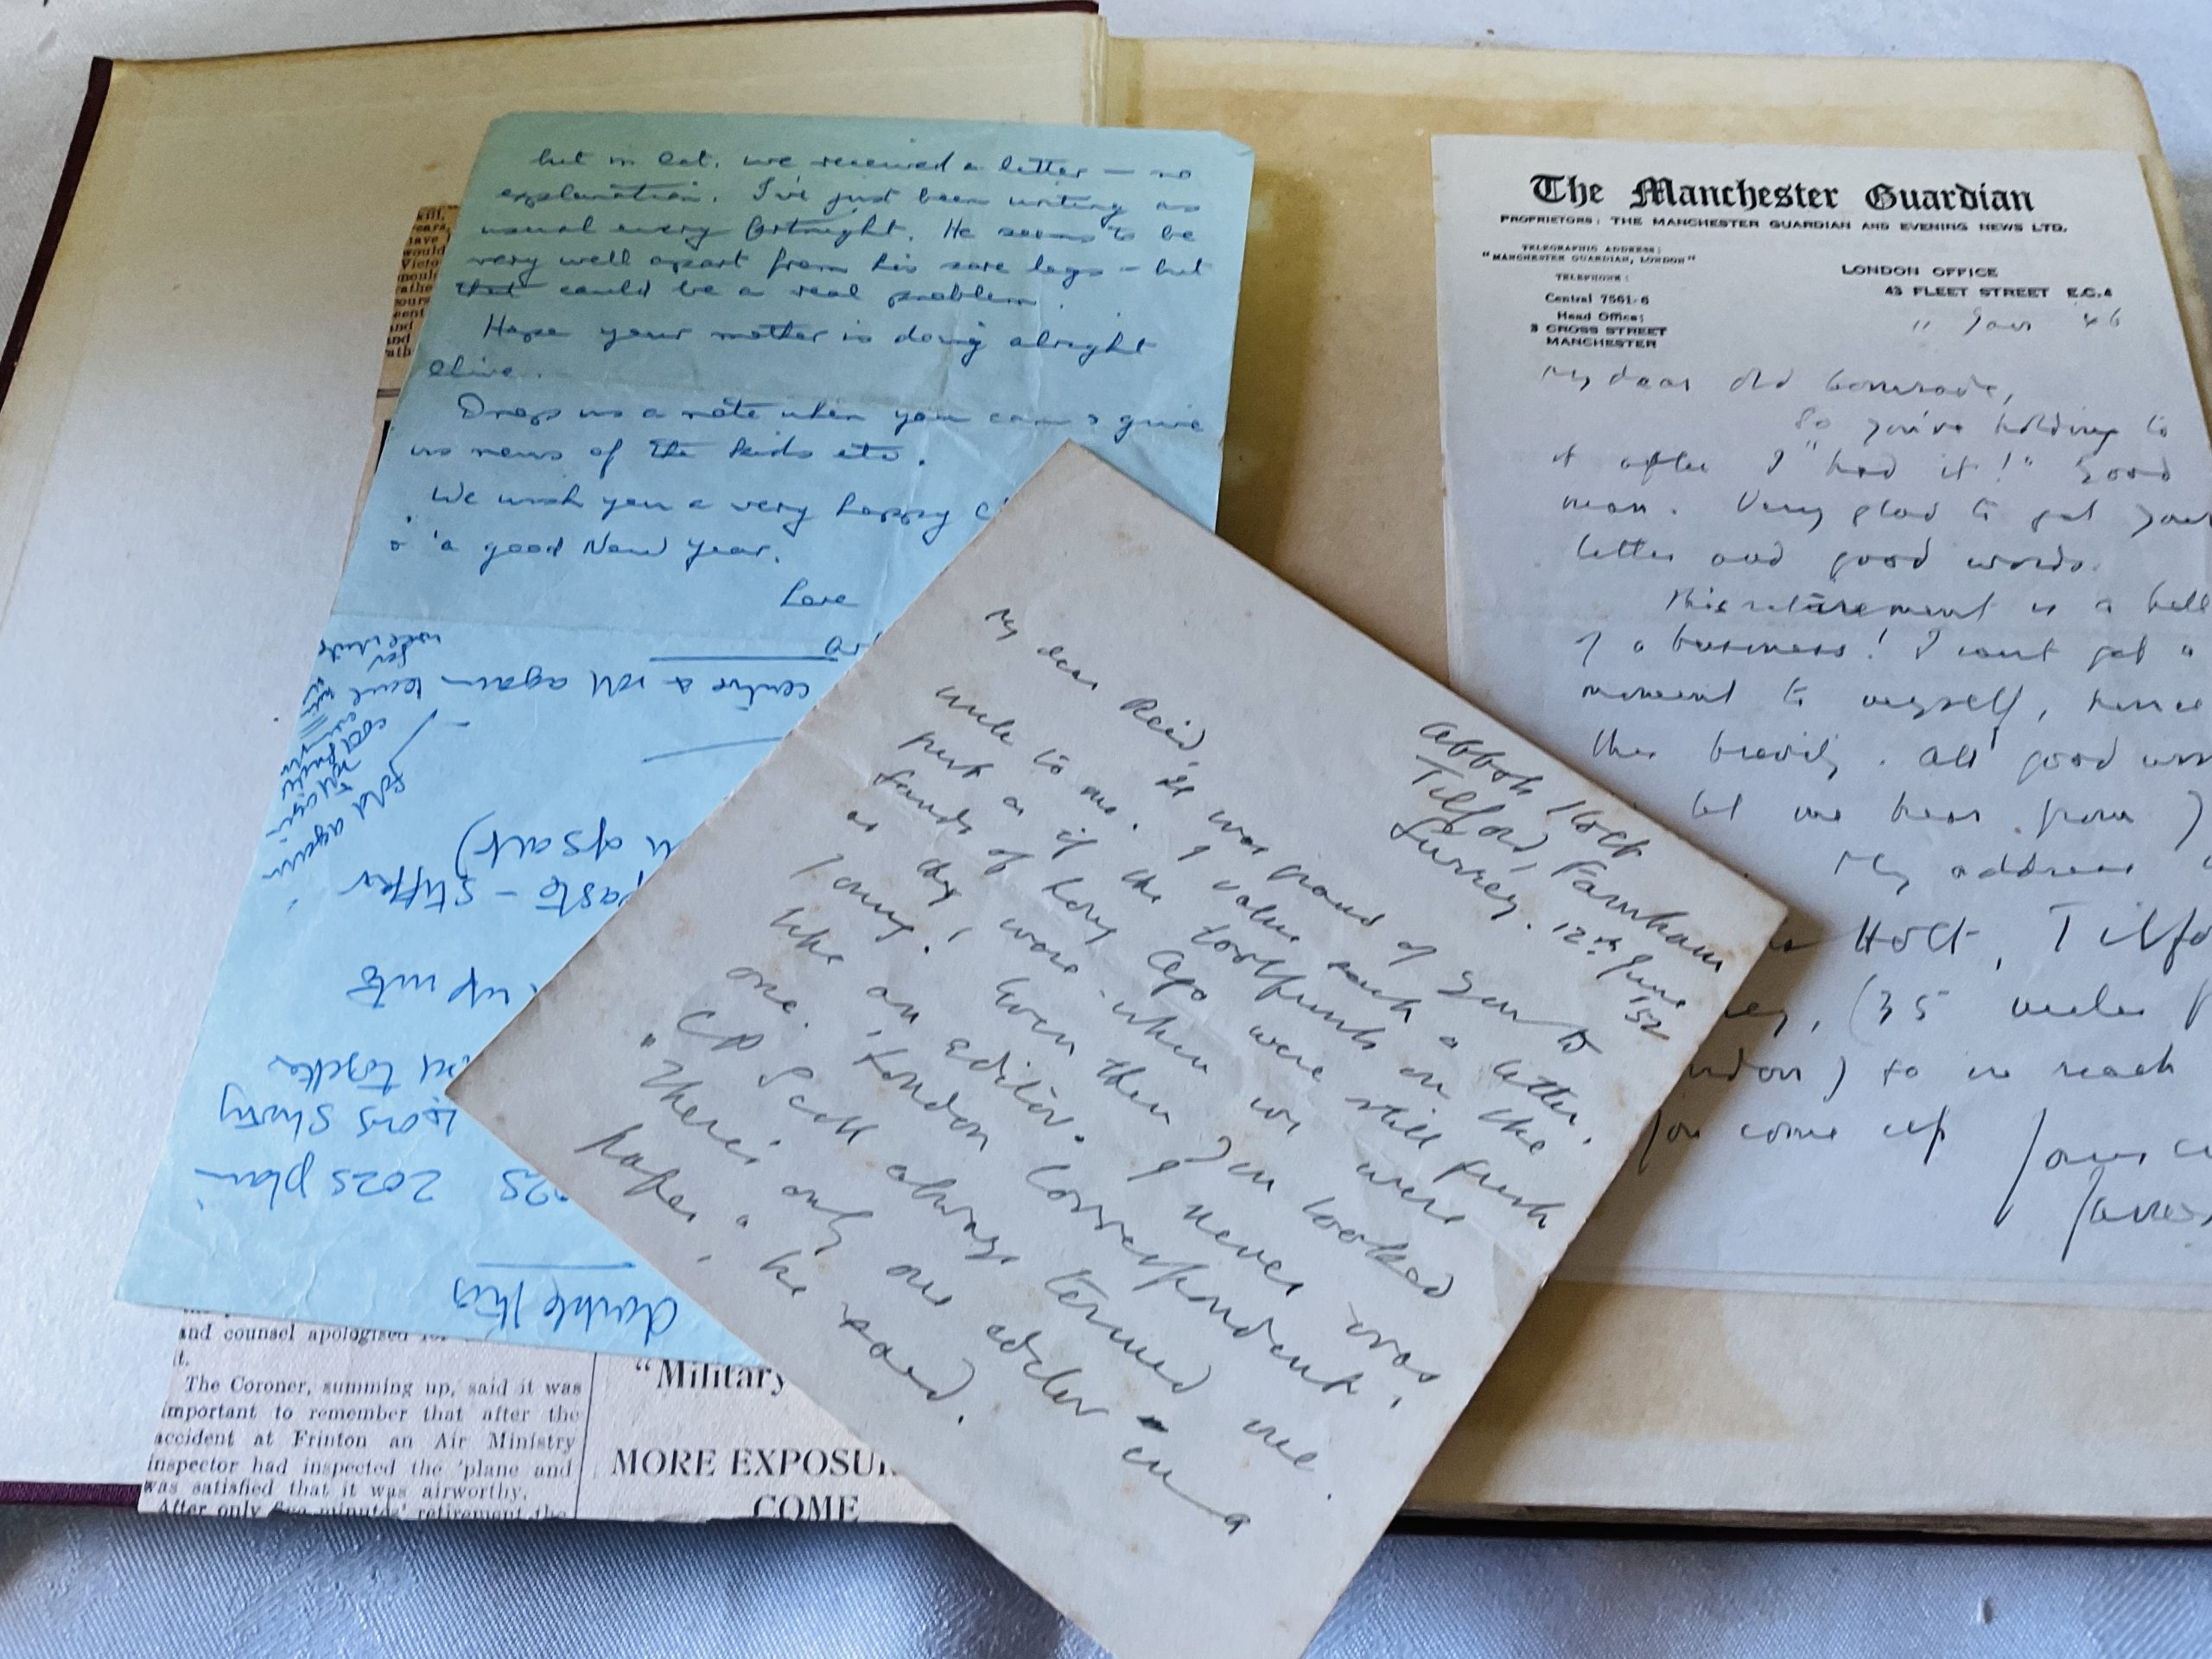 but in Oct. we received a letter — no
explanation. I've just been writing as
usual every fortnight. He seems to be
very well apart from his sore legs - but
that could be a real problem.
Hope your mother is doing alright
Olive.
Drop us a note when you can & give
us news of the kids etc.
We wish you a very happy C
& a good New Year.
Love
centre & roll again
fold again
paste - stiffer
up into
together
2025 plain
double this
The Manchester Guardian
PROPRIETORS: THE MANCHESTER GUARDIAN AND EVENING NEWS LTD.
TELEGRAPHIC ADDRESS:
"MANCHESTER GUARDIAN, LONDON"
TELEPHONE:
Central 7561-6
Head Office:
3 CROSS STREET
MANCHESTER
LONDON OFFICE
43 FLEET STREET E.C.4
11 Jan '46
My dear old Comrade,
So you're holding to
it after I "had it!" Good
man. Very glad to get your
letter and good words.
This retirement is a hell
of a business! I can't get a
moment to myself, hence
this brevity. All good
let me hear from
My address
Holt, Tilfo
(35 miles f
ndon) so in reach
you come up
Yours
James
Abbots Holt
Tilford, Farnham
Surrey. 12th June
'52
My dear Reid,
It was good of you to
write to me. I value such a letter,
just as if the footprints on the
sands of long ago were still fresh
as they were when we were
young. Even then you looked
like an Editor. I never was
one. 'London Correspondent',
CP Scott always termed me.
"There's only one editor in a
paper," he said.
kill,
ears,
have
would
Victo
and
and counsel apologised for
it.
The Coroner, summing up, said it was
important to remember that after the
accident at Frinton an Air Ministry
inspector had inspected the 'plane and
was satisfied that it was airworthy.
After only five minutes' retirement the
"Military
MORE EXPOSU
COME